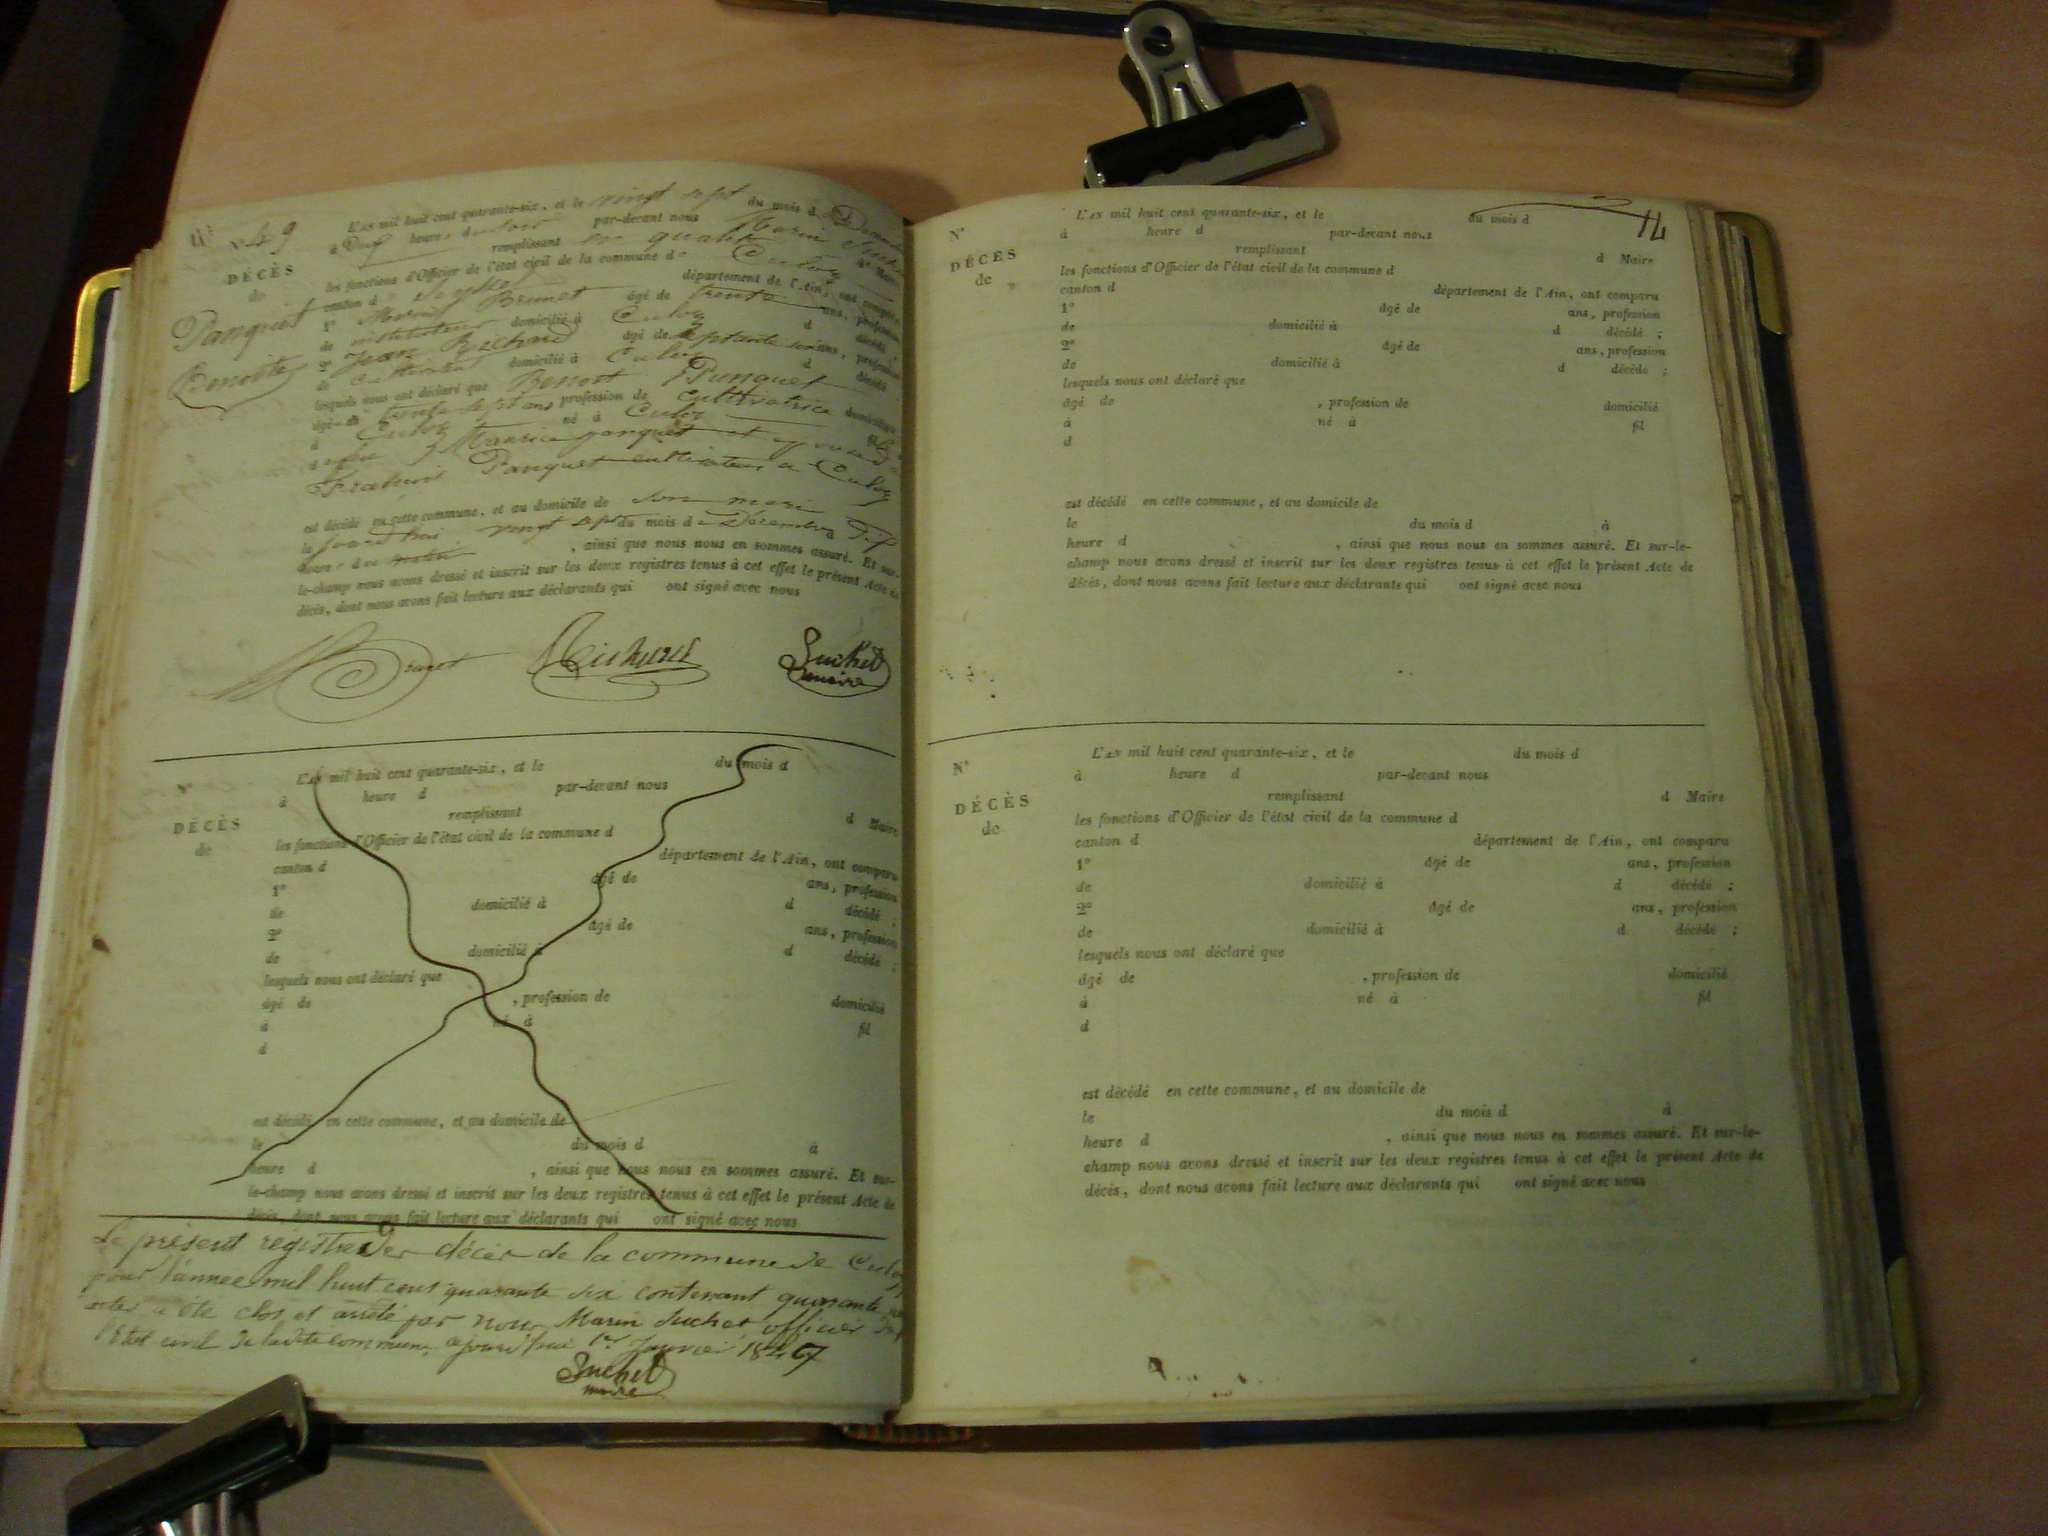 N° 49
DÉCÈS
de
Panquet
Benoite
L'AN mil huit cent quarante-six, et le vingt sept du mois d
à heure d par-devant nous Marin
remplissant en qualité Maire
les fonctions d'Officier de l'état civil de la commune de Culoz
canton d département de l'Ain, ont comparu
1° Brunet âgé de trente ans, profession
de instituteur domicilié à Culoz d décédé ;
2° Jean Richard âgé de septante ans, profession
de cultivateur domicilié à Culoz d décédé
lesquels nous ont déclaré que Benoit Panquet
âgé de trente sept ans profession de cultivatrice domicilié
à Culoz né à Culoz fille
d feu Maurice panquet et
Panquet cultivateur a Culoz
est décédé en cette commune, et au domicile de son mari
le jourd'hui vingt sept du mois de Décembre
heure du matin , ainsi que nous nous en sommes assuré. Et sur-
le-champ nous avons dressé et inscrit sur les deux registres tenus à cet effet le présent Acte de
décès, dont nous avons fait lecture aux déclarants qui ont signé avec nous
Brunet Richard Suchet
maire
N°
DÉCÈS
de
L'AN mil huit cent quarante-six, et le du mois d
à heure d par-devant nous
remplissant d Maire
les fonctions d'Officier de l'état civil de la commune d
canton d département de l'Ain, ont comparu
1° âgé de ans, profession
de domicilié à d décédé ;
2° âgé de ans, profession
de domicilié à d décédé ;
lesquels nous ont déclaré que
âgé de , profession de domicilié
à né à fil
d
est décédé en cette commune, et au domicile de
le du mois d à
heure d , ainsi que nous nous en sommes assuré. Et sur-
le-champ nous avons dressé et inscrit sur les deux registres tenus à cet effet le présent Acte de
décès, dont nous avons fait lecture aux déclarants qui ont signé avec nous
Le présent registre Des décès de la commune de Culoz
pour l'année mil huit cent quarante six contenant quarante
actes a été clos et arrêté par nous Marin Suchet officier
l'Etat civil De ladite commune, ajourd'hui 1er Janvier 1847
Suchet
maire
14
N°
DÉCÈS
de
L'AN mil huit cent quarante-six, et le du mois d
à heure d par-devant nous
remplissant d Maire
les fonctions d'Officier de l'état civil de la commune d
canton d département de l'Ain, ont comparu
1° âgé de ans, profession
de domicilié à d décédé ;
2° âgé de ans, profession
de domicilié à d décédé ;
lesquels nous ont déclaré que
âgé de , profession de domicilié
à né à fil
d
est décédé en cette commune, et au domicile de
le du mois d à
heure d , ainsi que nous nous en sommes assuré. Et sur-le-
champ nous avons dressé et inscrit sur les deux registres tenus à cet effet le présent Acte de
décès, dont nous avons fait lecture aux déclarants qui ont signé avec nous
N°
DÉCÈS
de
L'AN mil huit cent quarante-six, et le du mois d
à heure d par-devant nous
remplissant d Maire
les fonctions d'Officier de l'état civil de la commune d
canton d département de l'Ain, ont comparu
1° âgé de ans, profession
de domicilié à d décédé ;
2° âgé de ans, profession
de domicilié à d décédé ;
lesquels nous ont déclaré que
âgé de , profession de domicilié
à né à fil
d
est décédé en cette commune, et au domicile de
le du mois d à
heure d , ainsi que nous nous en sommes assuré. Et sur-le-
champ nous avons dressé et inscrit sur les deux registres tenus à cet effet le présent Acte de
décès, dont nous avons fait lecture aux déclarants qui ont signé avec nous